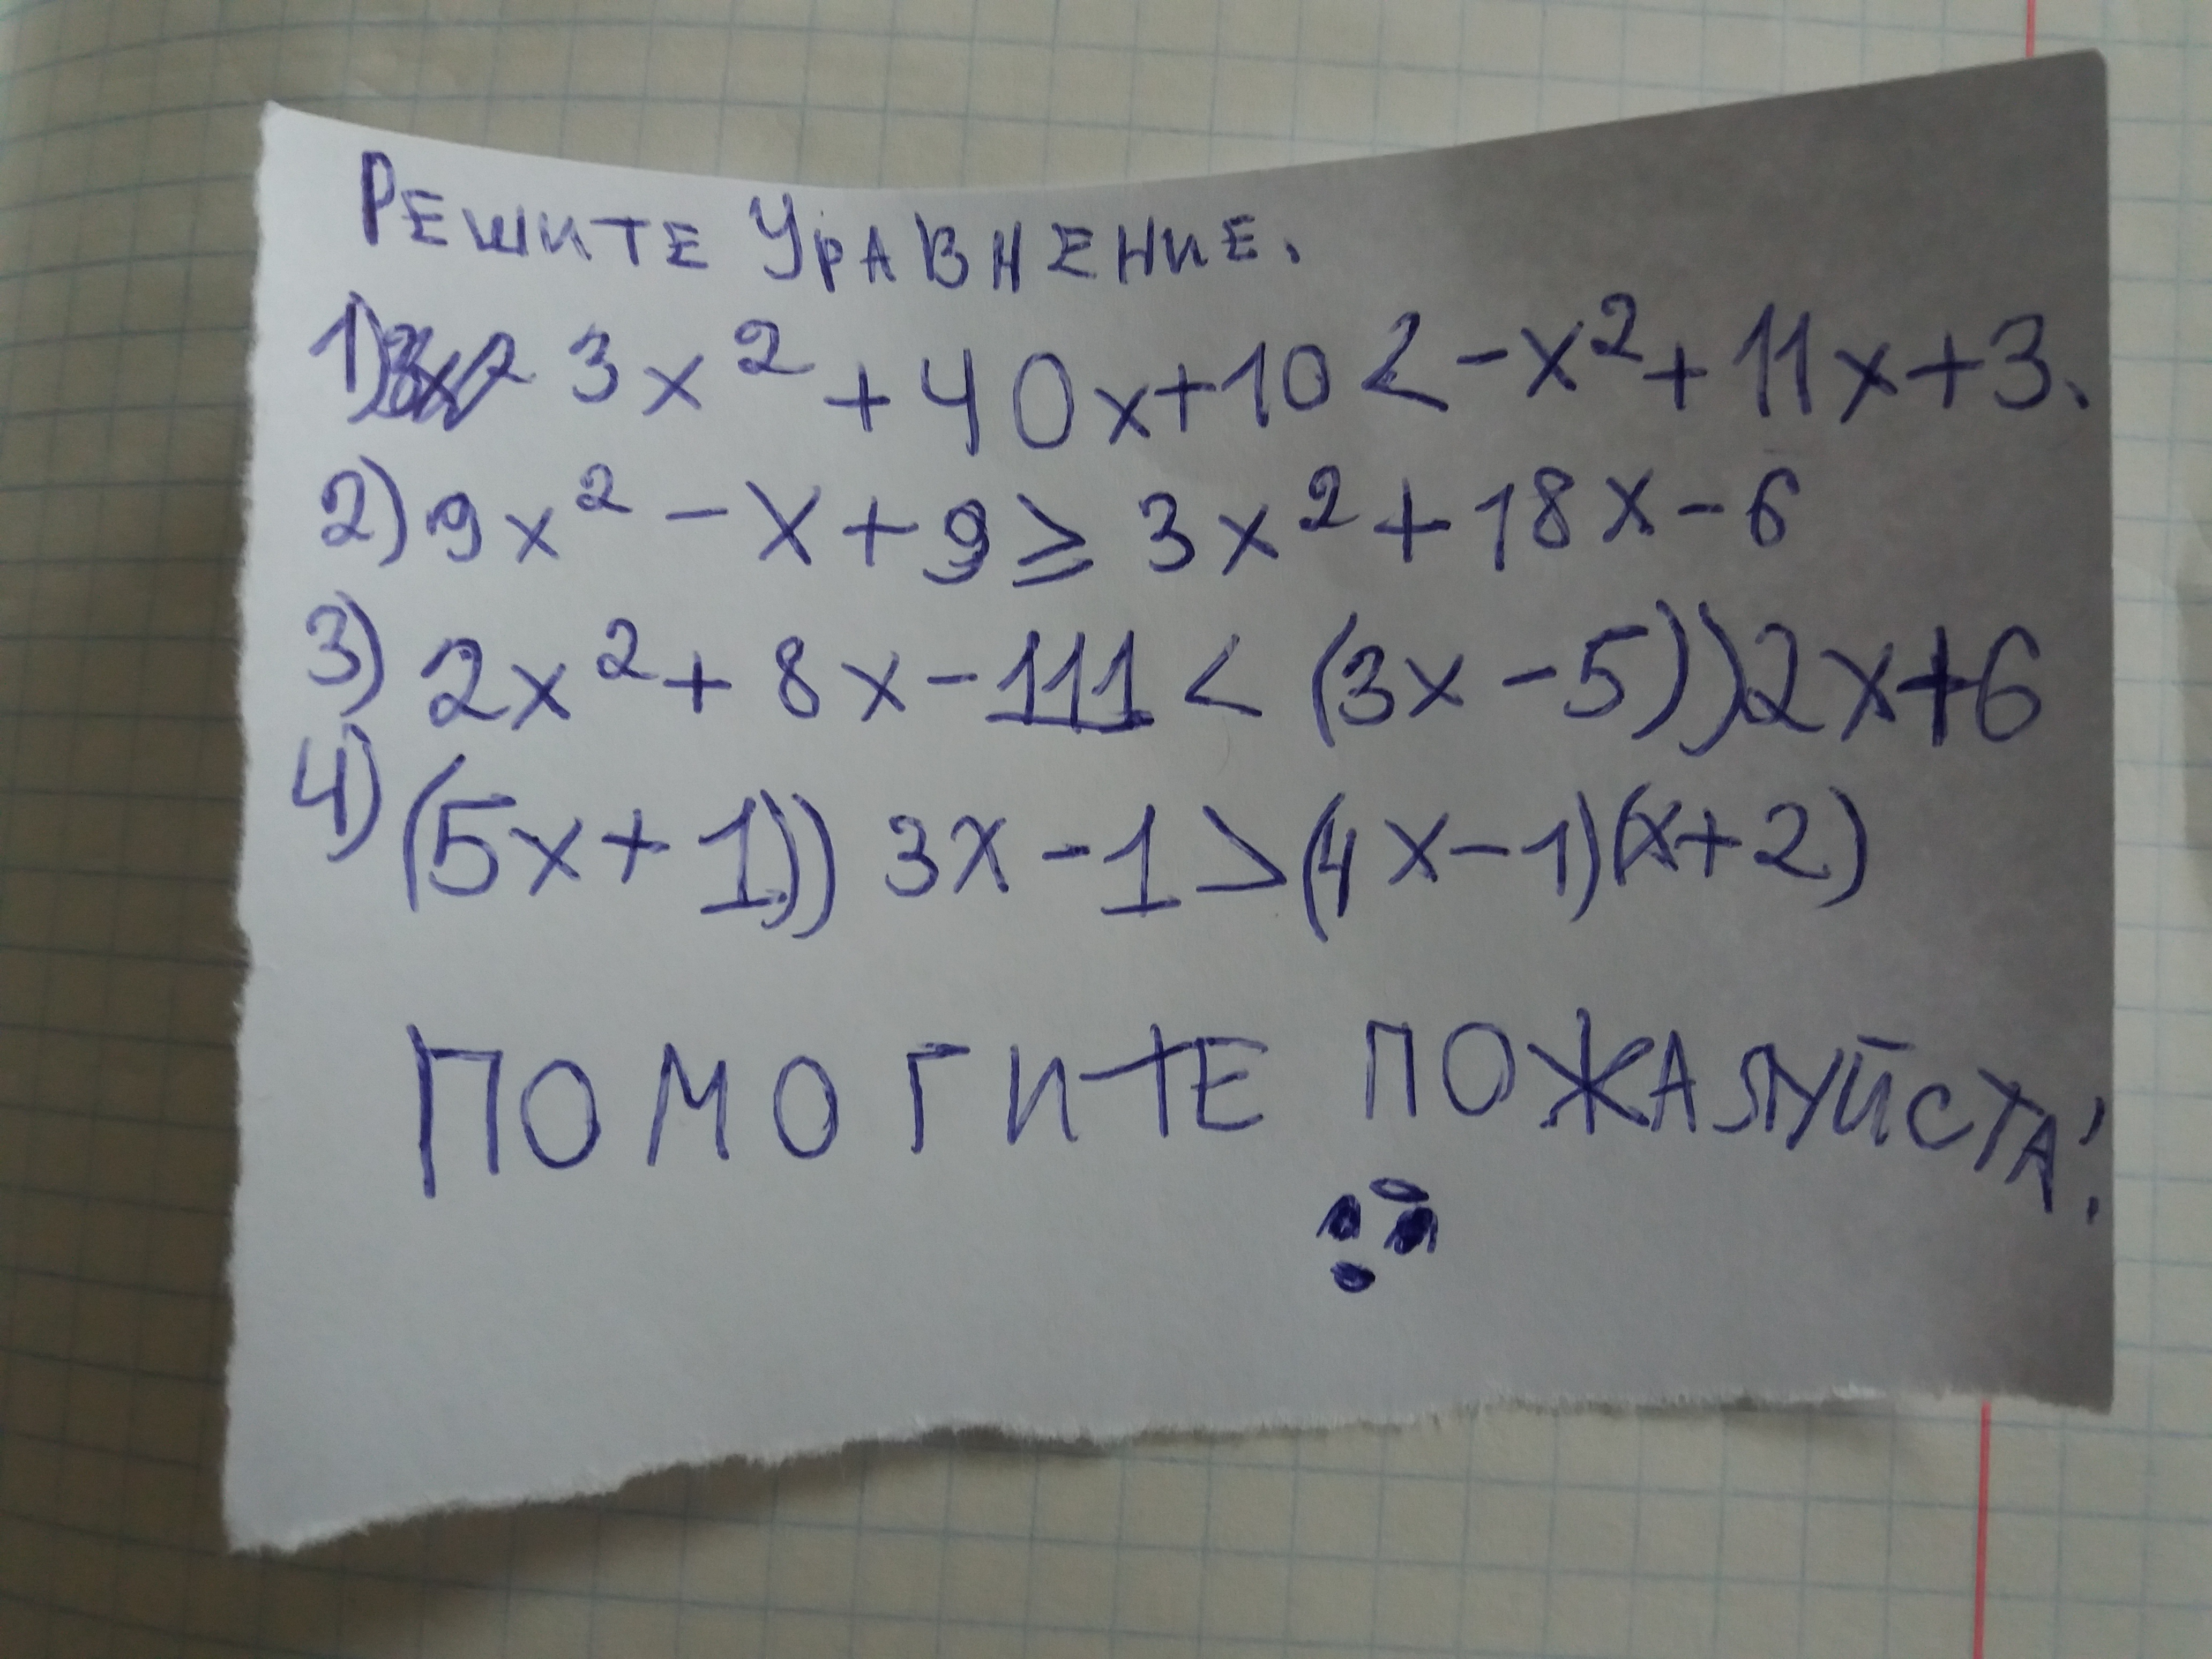 Решите Уравнение.
1) 3x² + 40x + 10 < -x² + 11x + 3.
2) 9x² - x + 9 ≥ 3x² + 18x - 6
3) 2x² + 8x - 111 < (3x - 5))2x + 6
4) (5x + 1)) 3x - 1 > (4x - 1)(x + 2)
ПОМОГИТЕ ПОЖАЛУЙСТА!